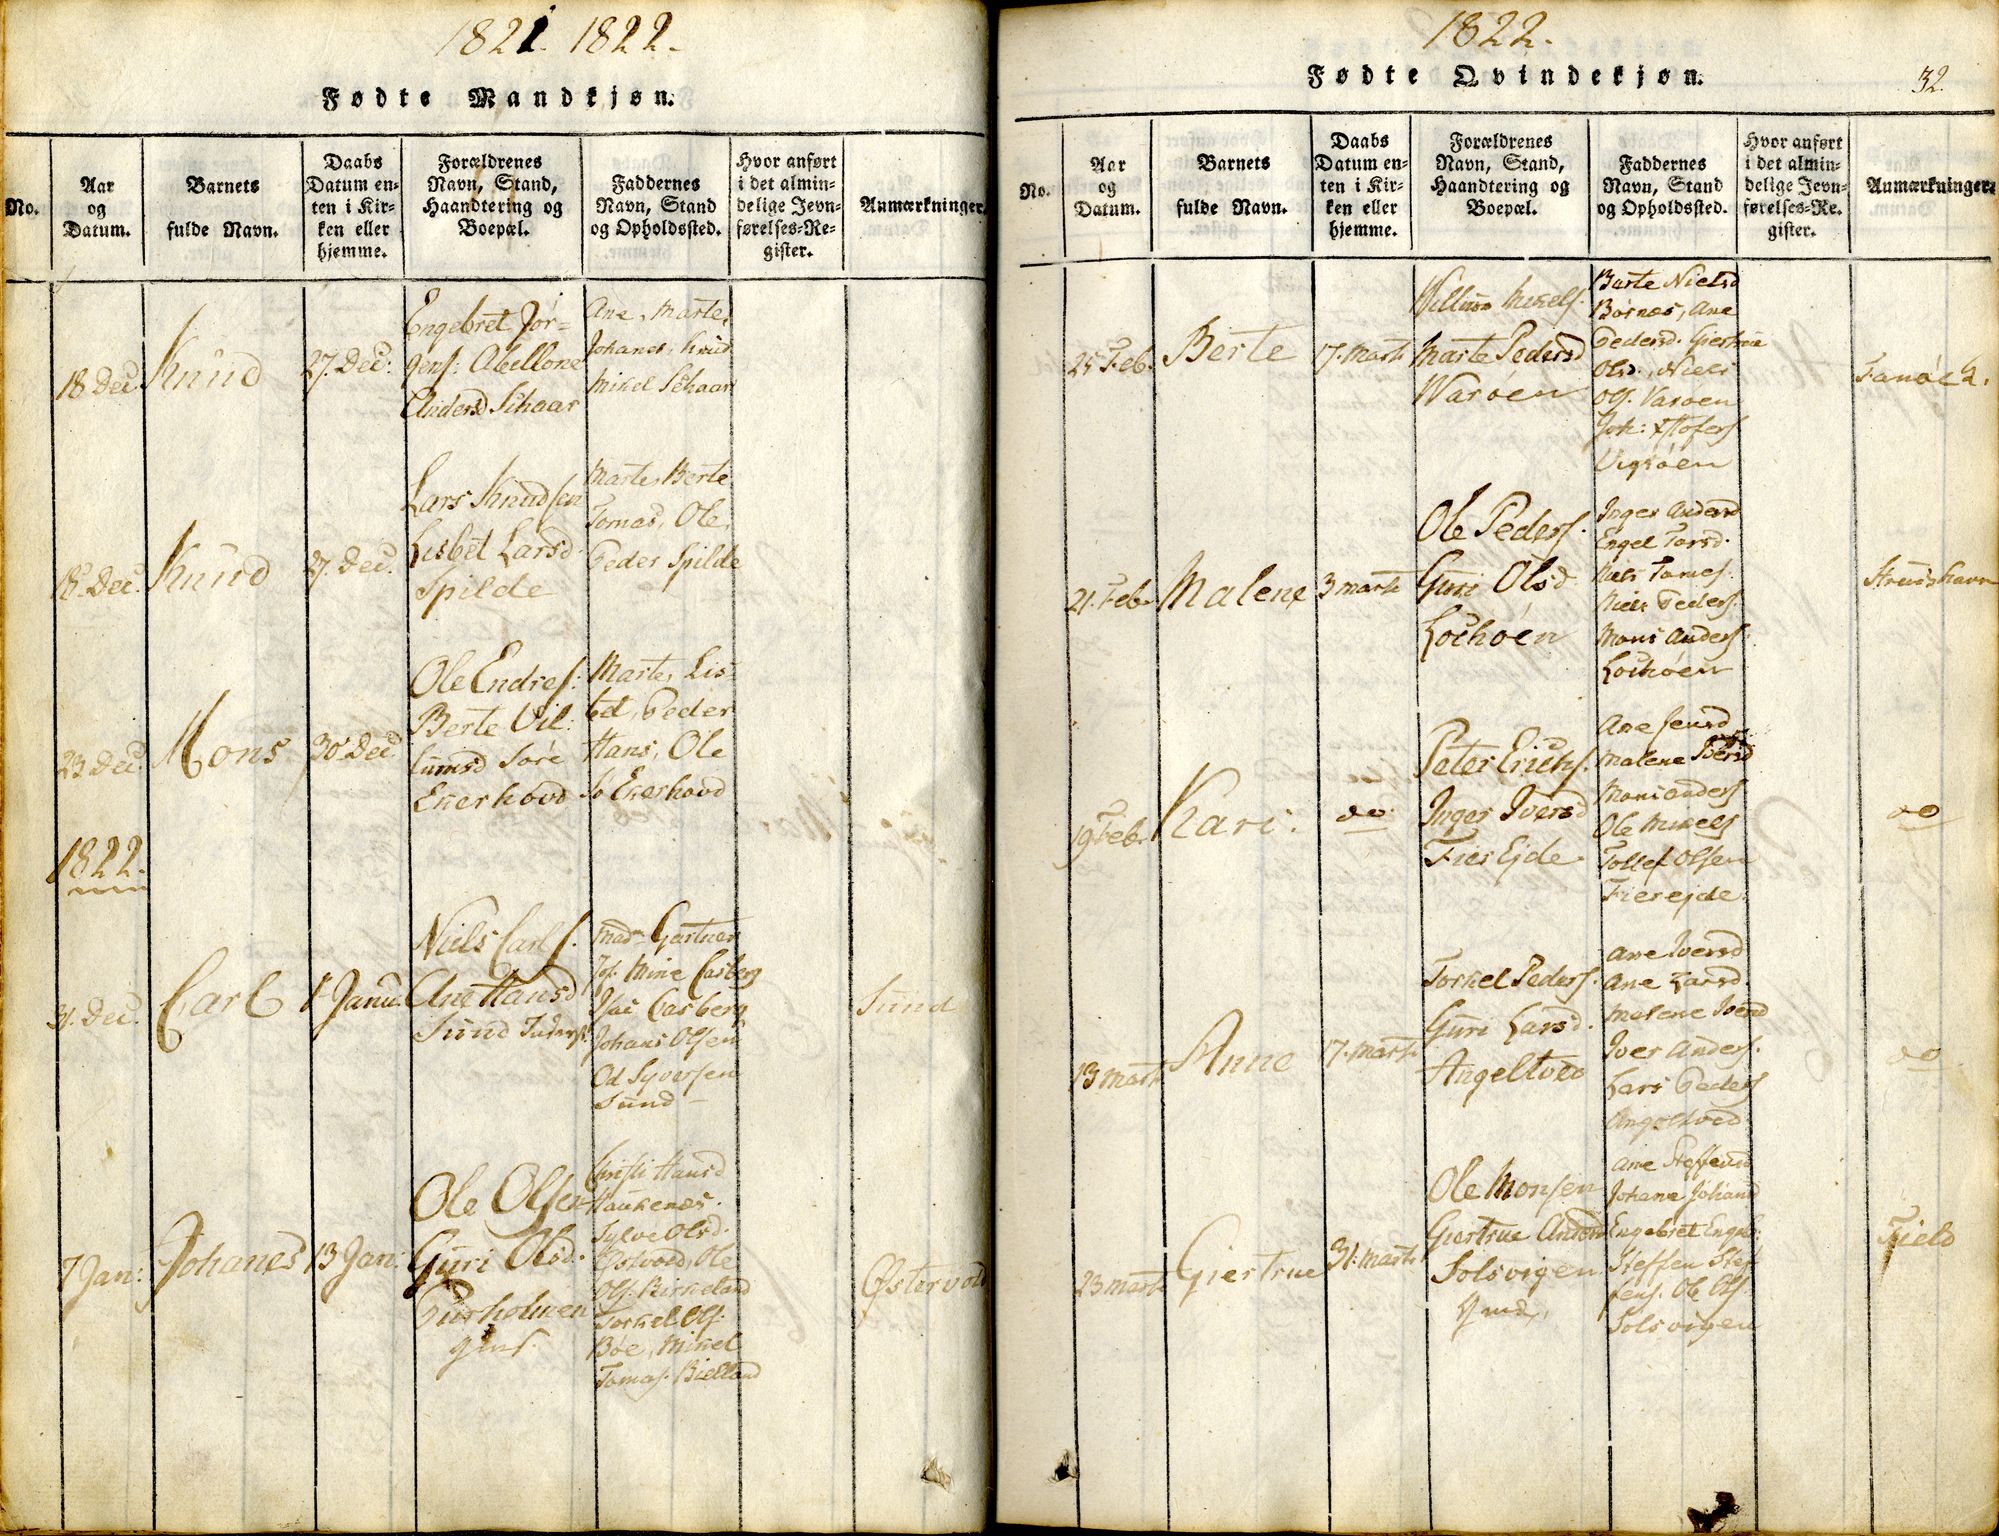 1821. 1822.
Fødte Mandkjøn.
No.
Aar
og
Datum.
Barnets
fulde Navn.
Daabs
Datum en-
ten i Kir-
ken eller
hjemme.
Forældrenes
Navn, Stand,
Haandtering og
Boepæl.
Faddernes
Navn, Stand
og Opholdssted.
Hvor anført
i det almin-
delige Jevn-
førelses-Re-
gister.
Anmærkninger.
18 Dec.
Knud
27. Dec:
Engebret Jør-
gens: Abellone
Andersd Schaar
Ane, Marte,
Johanes, Knud
Mikel Schaar
18. Dec.
Knud
27. Dec.
Lars Knudsen
Lisbet Larsd.
Spilde
Marte, Berte
Tomas, Ole,
Peder Spilde
23 Dec.
Mons
30 Dec
Ole Endres:
Berte Vil:
lumsd Søre
Ekerhovd
Marte, Lis-
bet, Peder
Hans, Ole
So Ekerhovd
1822.
31. Dec.
Carl
1 Janu.
Niels Carls.
Ane Hansd
Sund
Mad. Gartner
Jfr. Mine Casberg
Isac Casberg
Johans Olsen
Od Syversen
Sund
Sund
7 Jan:
Johanes
13 Jan:
Ole Olsen
Guri Olsd.
Buskholmen
Hansd
Haukenæs.
Sylve Olsd.
Østvold, Ole
Ols. Birkeland
Torkel Ols.
Bøe, Mikel
Tomas. Bielland
Østervold
1822.
Fødte Qvindekjøn.
32.
No.
Aar
og
Datum.
Barnets
fulde Navn.
Daabs
Datum en-
ten i Kir-
ken eller
hjemme.
Forældrenes
Navn, Stand,
Haandtering og
Boepæl.
Faddernes
Navn, Stand
og Opholdssted.
Hvor anført
i det almin-
delige Jevn-
førelses-Re-
gister.
Anmærkninger.
25 Feb.
Berte
17. Marts
Villum Mikels.
Marte Pedersd
Warøen
Berte Nielsd
Børnæs, Ane
Pedersd. Giertrue
Olsd., Niels
Ols. Varøen
Joh:
Vigsøen
Fanøe
21. Feb.
Malene
3 Marts
Ole Peders.
Guri Olsd
Lochøen
Inger Andersd
Engel Larsd.
Niels Tomes.
Niels Peders.
Mons Anders.
Lochøen
Struishavn
19 Feb.
Kari.
do
Peter Erichs.
Inger Iversd
Fier Ejde.
Ane Jensd
Malene
Mons Anders
Ole Mikels
Tollef Olsen
Fierejde.
do
13 Marts
Anne
17. Marts.
Torkel Peders.
Guri Larsd.
Angeltved
Ane Iversd
Ane Larsd
Malene Iversd
Iver Anders.
Lars Peders
Angeltved
do
23 Marts
Giertrue
31. Marts.
Ole Monsen
Giertrue Andersd
Solsvigen
Ane Steffensd
Johane Johansd
Engebret Engebr.
Steffen Stef
fens. Ole Ols.
Solsvigen
Field